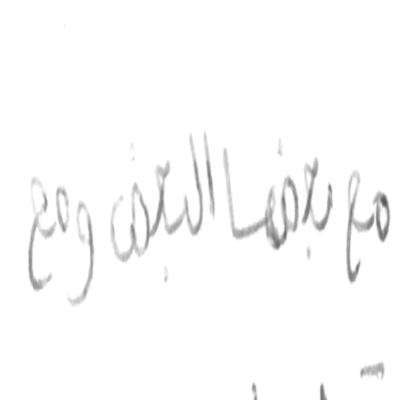 مع بعضنا البعض ومع